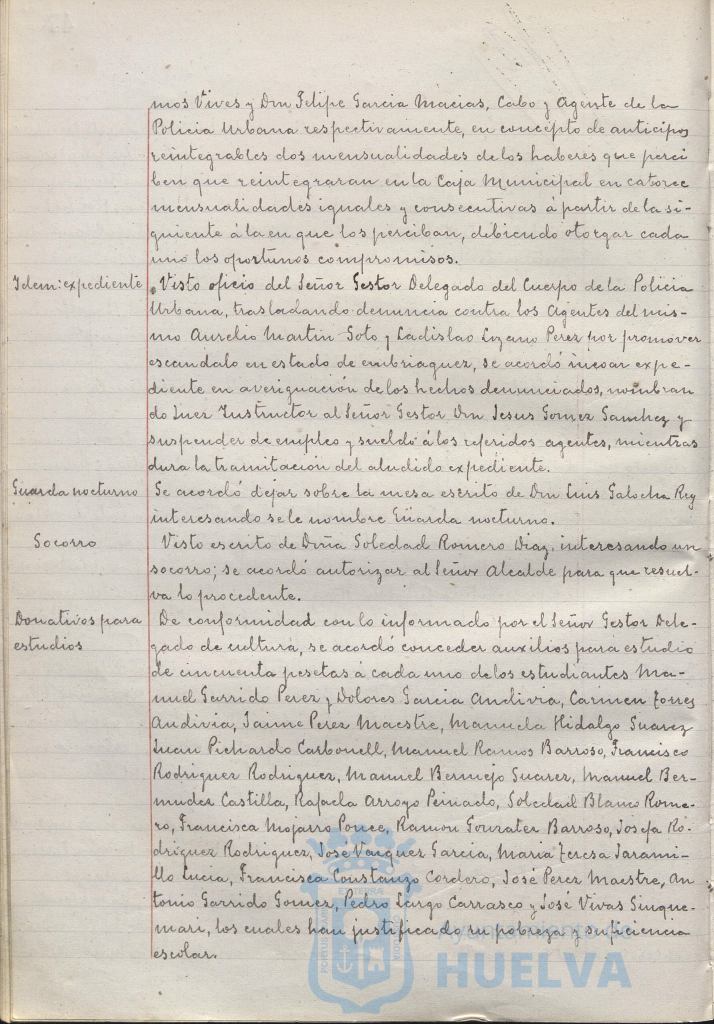 mos Vives y Don Felipe Garcia Macias, Cabo y Agente de la
Policia Urbana respectivamente, en concepto de anticipos
reintegrables dos mensualidades de los haberes que perci
ben que reintegraran en la Caja Municipal en catorce
mensualidades iguales y consecutivas á partir de la si-
guiente á la en que los perciban, debiendo otorgar cada
uno los oportunos compromisos.
Idem: expediente
Visto oficio del Señor Gestor Delegado del Cuerpo de la Policia
Urbana, trasladando denuncia contra los Agentes del mis-
mo Aurelio Martin Soto y Ladislao Lozano Perez por promover
escandalo en estado de embriaguez, se acordó incoar expe-
diente en averiguación de los hechos denunciados, nombran
do Juez Instructor al Señor Gestor Don Jesus Gomez Sanchez y
suspender de empleo y sueldo á los referidos agentes, mientras
dura la tramitación del aludido expediente.
Guarda nocturno
Se acordó dejar sobre la mesa escrito de Don Luis Galocha Rey
interesando se le nombre Güarda nocturno.
Socorro
Visto escrito de Doña Soledad Romero Diaz, interesando un
socorro; se acordó autorizar al Señor Alcalde para que resuel-
va lo procedente.
Donativos para
estudios
De conformidad con lo informado por el Señor Gestor Dele-
gado de cultura, se acordó conceder auxilios para estudio
de cincuenta pesetas á cada uno de los estudiantes Ma-
nuel Garrido Perez y Dolores Garcia Andivia, Carmen Torres
Andivia, Jaime Perez Maestre, Manuela Hidalgo Suarez
Juan Pichardo Carbonell, Manuel Ramos Barroso, Francisco
Rodriguez Rodriguez, Manuel Bermejo Suarez, Manuel Ber-
mudez Castilla, Rafaela Arroyo Peinado, Soledad Blanco Rome-
ro, Francisca Mojarro Ponce, Ramon Gonzalez Barroso, Josefa Ro-
driguez Rodriguez, José Vazquez Garcia, Maria Teresa Jarami-
llo Lucia, Francisca Constanzo Cordero, José Perez Maestre, An
tonio Garrido Gomez, Pedro Largo Carrasco y José Vivas Sinque-
mari, los cuales han justificado su pobreza y suficiencia
escolar.
Ayuntamiento de
HUELVA